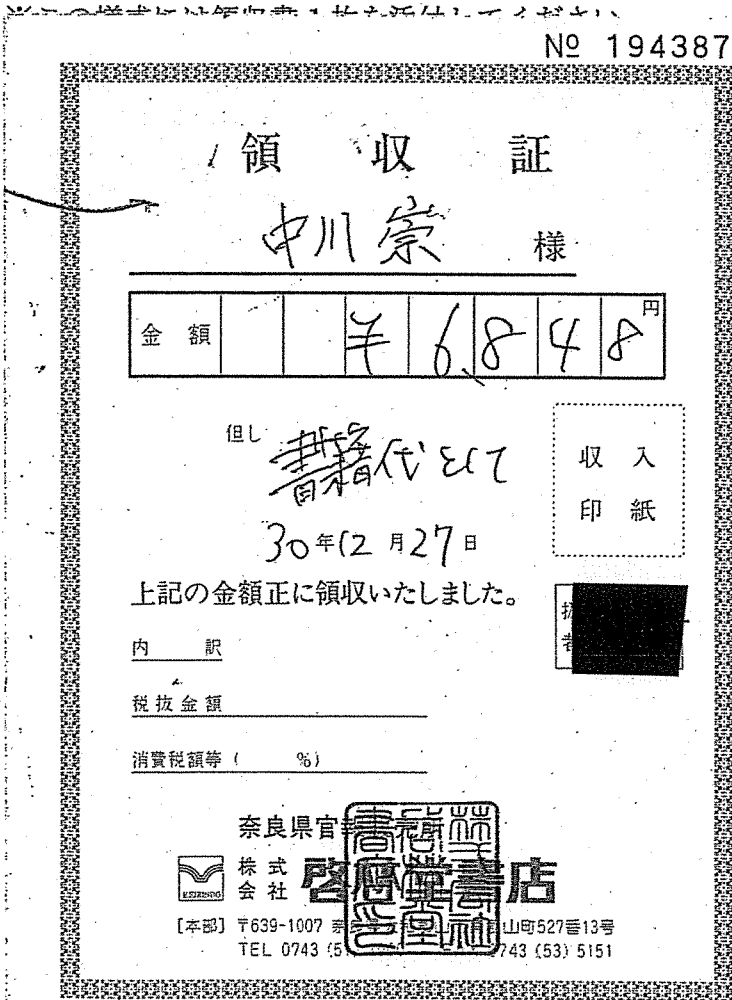 № 194387
領収証
中川崇 様
金額 ¥6,848円
但し 書籍代として
収入
印紙
30年12月27日
上記の金額正に領収いたしました。
内訳
税抜金額
消費税額等( %)
奈良県官報
株式
会社 啓林堂書店
[本部] 〒639-1007 山町527番13号
TEL 0743 743 (53) 5151